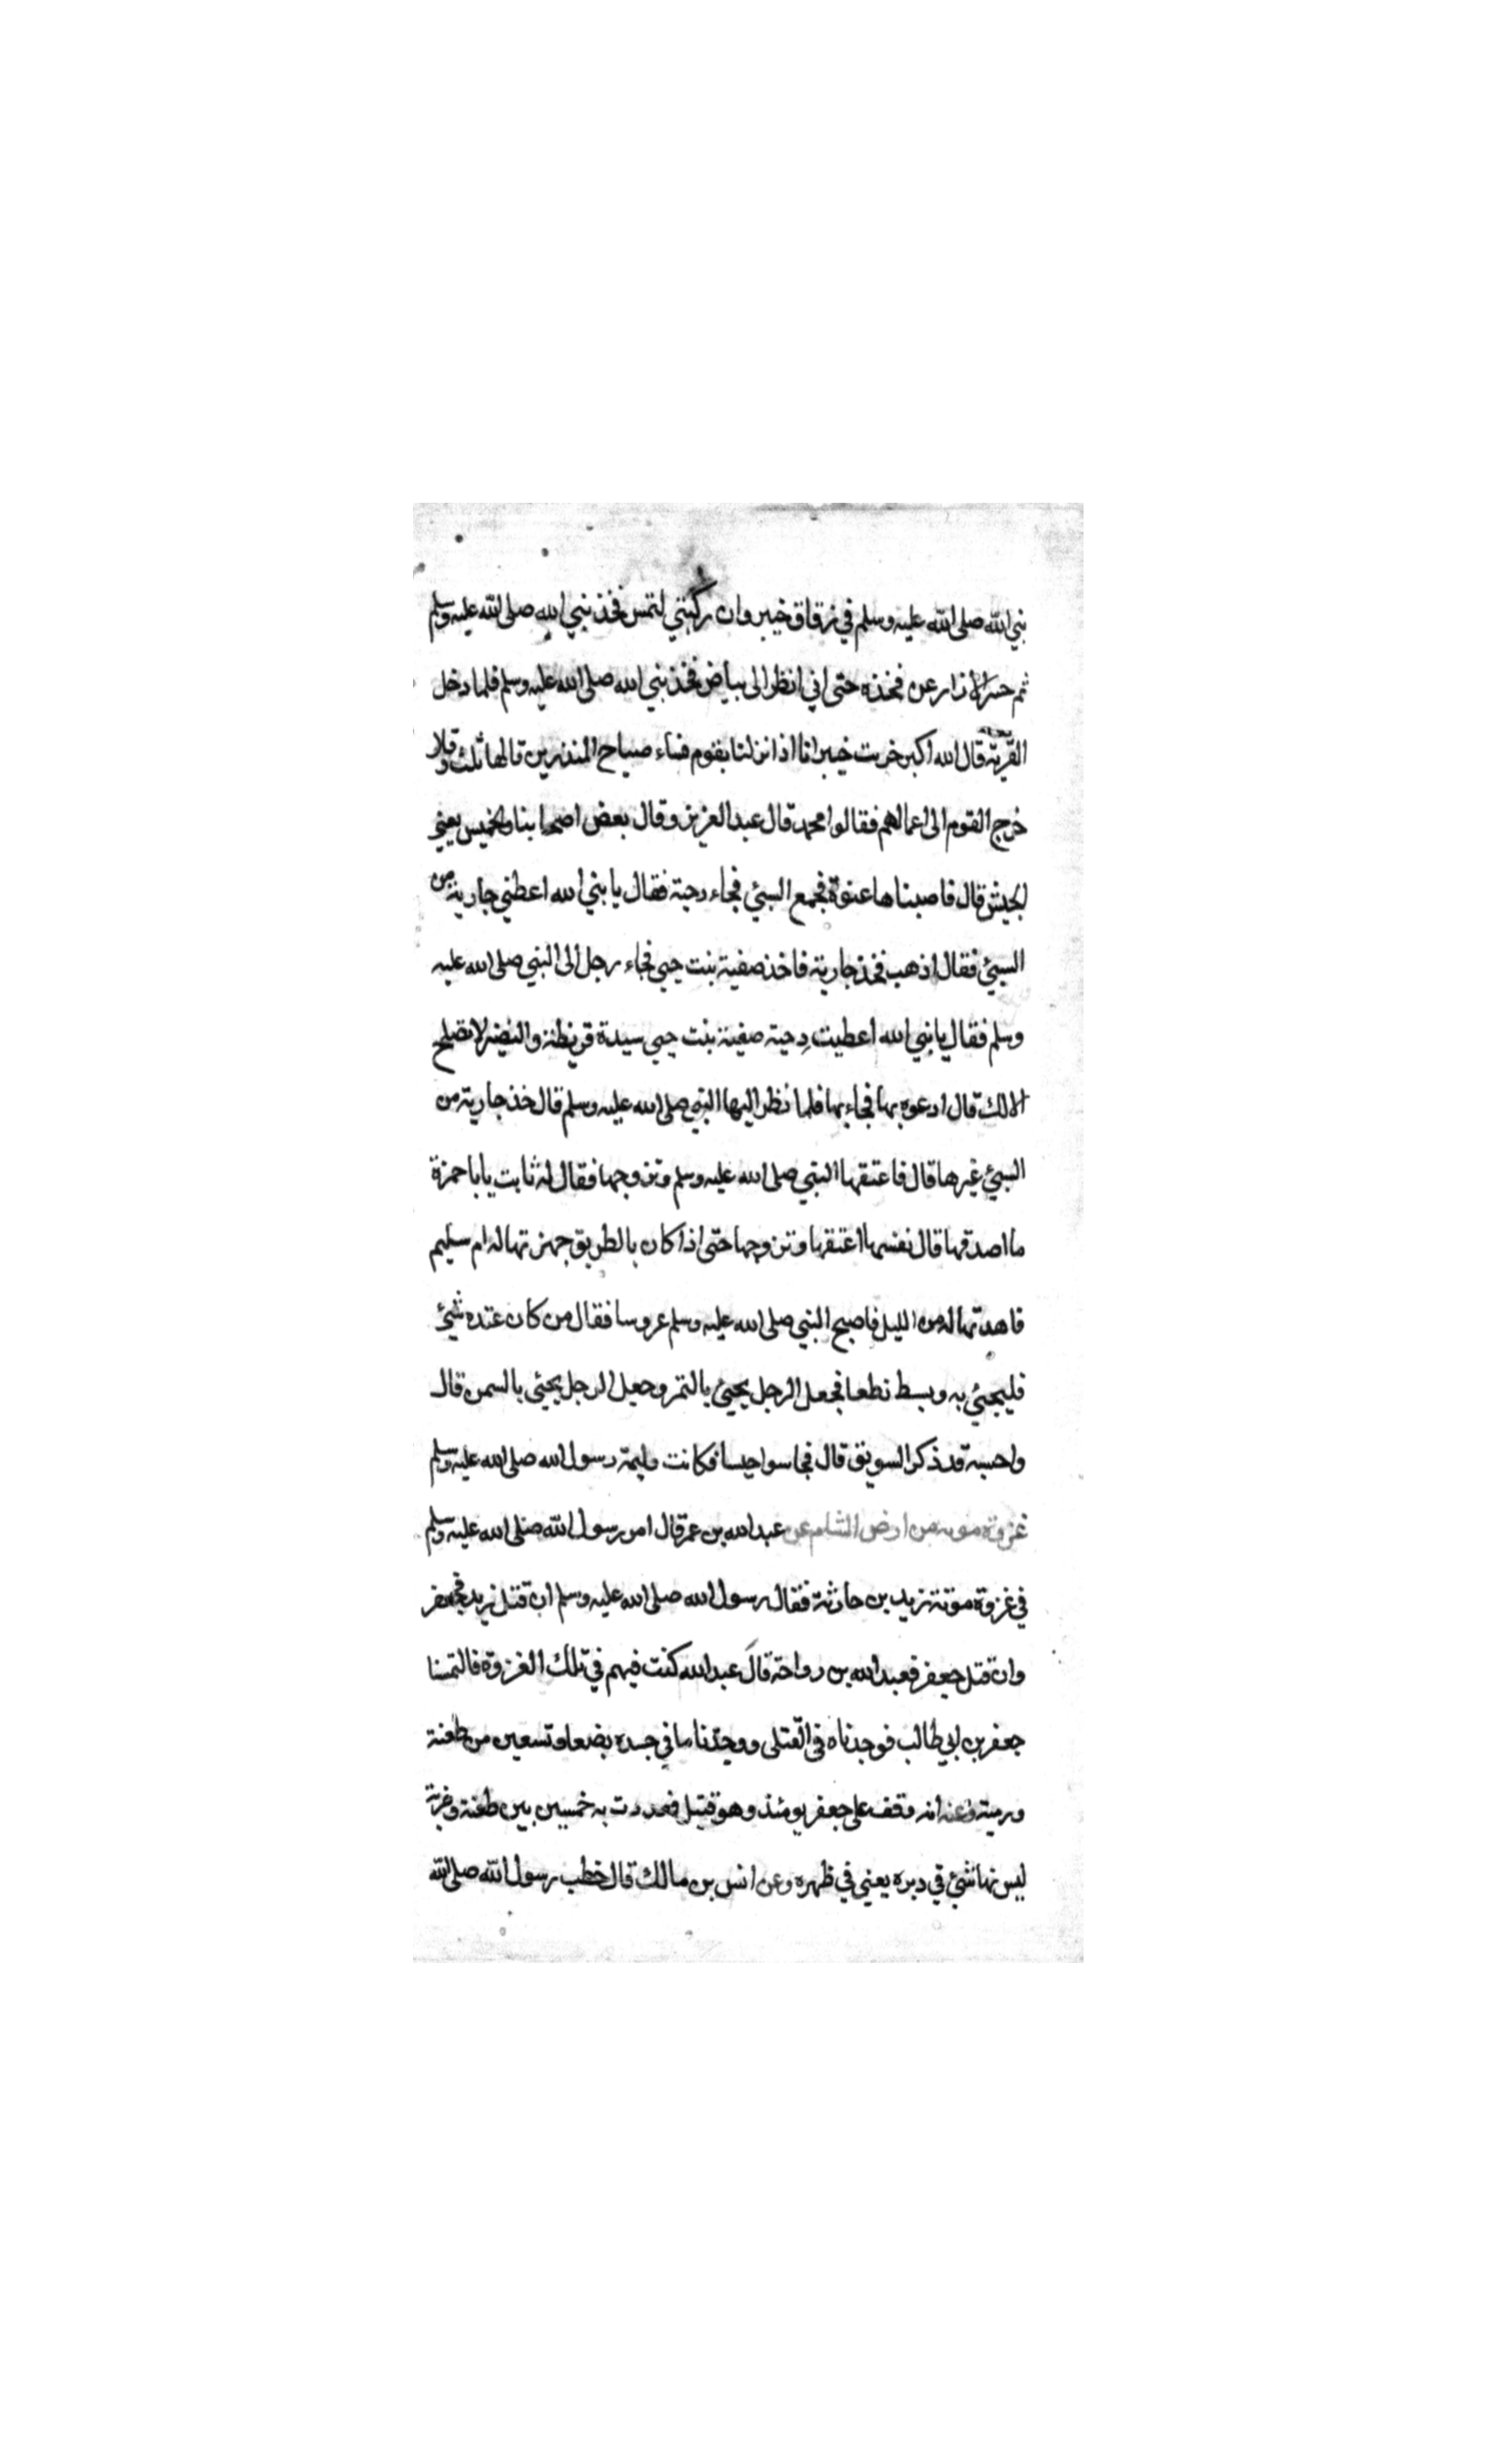 نبي الله صلى الله عليه وسلم في زقاق خيبر وان ركبتي لتمس فخذ نبي الله صلى الله عليه وسلم
ثم حسر الازار عن فخذه حتى اني انظر الى بياض فخذ نبي الله صلى الله عليه وسلم فلما دخل
القرية قال الله اكبر خربت خيبر انا اذا نزلنا بقوم فساء صباح المنذرين قالها ثلث وقلا
خرج القوم الى اعمالهم فقالوا محمد قال عبد العزيز وقال بعض اصحابنا والخميس يعني
الجيش قال فاصبناها عنوة فجمع السبئ فجاء دحية فقال يا نبي الله اعطني جارية من
السبئ فقال اذهب فخذ جارية فاخذ صفية بنت حيي فجاء رجل الى النبي صلى الله عليه
وسلم فقال يا نبي الله اعطيت دحية صفية بنت حيي سيدة قريظة والنضير لا تصلح
الا لك قال ادعوه بها فجاء بها فلما نظر اليها النبي صلى الله عليه وسلم قال خذ جارية من
السبئ غيرها قال فاعتقها النبي صلى الله عليه وسلم وتزوجها فقال له ثابت يا با حمزة
ما اصدقها قال نفسها اعتقها وتزوجها حتى اذا كان بالطريق جهزتها له ام سليم
فاهدتها له من الليل فاصبح النبي صلى الله عليه وسلم عروسا فقال من كان عنده شيئ
فليجئ به وبسط نطعا فجعل الرجل يجيئ بالتمر وجعل الرجل يجيئ بالسمن قال
واحسبه قد ذكر السويق قال فحاسوا حيسا فكانت وليمة رسول الله صلى الله عليه وسلم
غزوة موته من ارض الشام عن عبد الله بن عمر قال امر رسول الله صلى الله عليه وسلم
في غزوة موتة زيد بن حارثة فقال رسول الله صلى الله عليه وسلم ان قتل زيد فجعفر
وان قتل جعفر فعبد الله بن رواحة قال عبد الله كنت فيهم في تلك الغزوة فالتمسنا
جعفر بن ابي طالب فوجدناه في القتلى ووجدنا ما في جسده بضعا وتسعين من طعنة
ورمية وعنه انه وقف على جعفر يومئذ وهو قتيل فعددت به خمسين بين طعنة وضربة
ليس نها شئ في دبره يعني في ظهره وعن انس بن مالك قال خطب رسول الله صلى الله